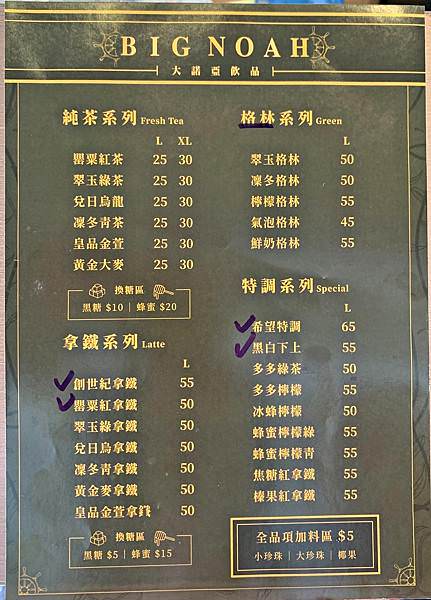 BIG NOAH
大諾亞飲品
純茶系列 Fresh Tea
L XL
罌粟紅茶 25 30
翠玉綠茶 25 30
兌日烏龍 25 30
凜冬青茶 25 30
皇品金萱 25 30
黃金大麥 25 30
換糖區
黑糖 $10 | 蜂蜜 $20
拿鐵系列 Latte
L
創世紀拿鐵 55
罌粟紅拿鐵 50
翠玉綠拿鐵 50
兌日烏拿鐵 50
凜冬青拿鐵 50
黃金麥拿鐵 50
皇品金萱拿鐵 50
換糖區
黑糖 $5 | 蜂蜜 $15
格林系列 Green
L
翠玉格林 50
凜冬格林 50
檸檬格林 55
氣泡格林 45
鮮奶格林 55
特調系列 Special
L
希望特調 65
黑白下上 55
多多綠茶 50
多多檸檬 55
冰蜂檸檬 50
蜂蜜檸檬綠 55
蜂蜜檸檬青 55
焦糖紅拿鐵 55
榛果紅拿鐵 55
全品項加料區 $5
小珍珠 | 大珍珠 | 椰果